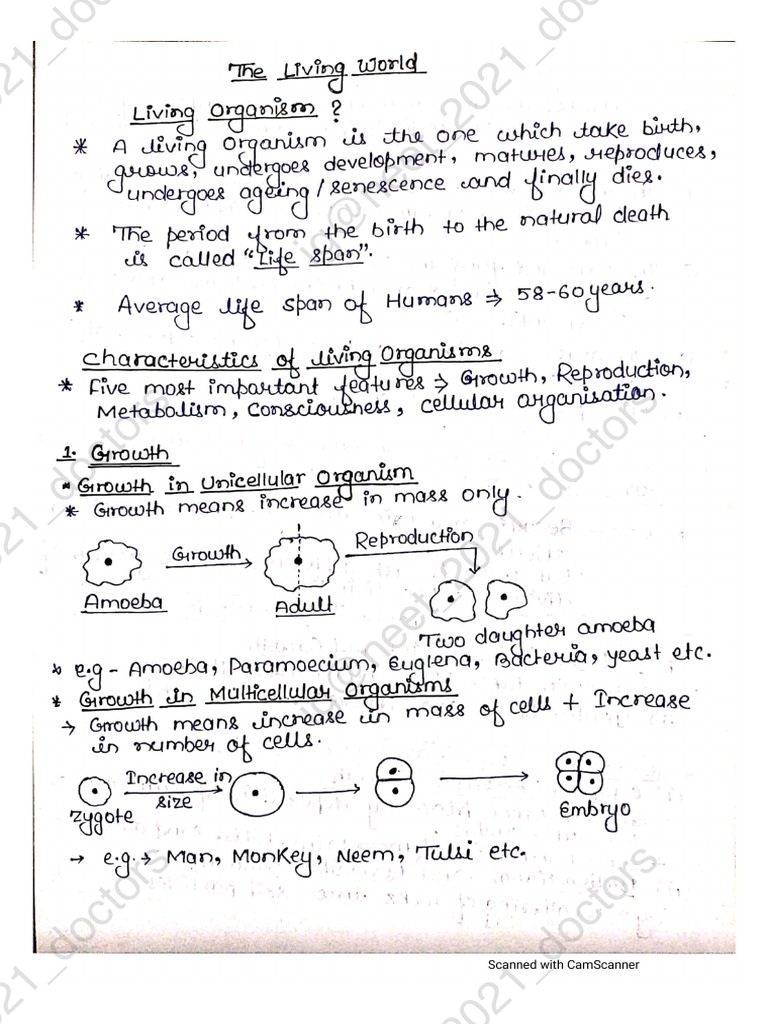 The Living World
Living Organism ?
* A living organism is the one which take birth,
grows, undergoes development, matures, reproduces,
undergoes ageing/senescence and finally dies.
* The period from the birth to the natural death
is called "Life span".
* Average life span of Humans → 58-60 years.
Characteristics of living Organisms
* Five most important features → Growth, Reproduction,
Metabolism, Consciousness, cellular organisation.
1. Growth
* Growth in Unicellular Organism
* Growth means increase in mass only.
Growth
Reproduction
Amoeba
Adult
Two daughter amoeba
* e.g - Amoeba, Paramoecium, Euglena, Bacteria, yeast etc.
* Growth in Multicellular Organisms
→ Growth means increase in mass of cells + Increase
in number of cells.
Increase in
size
Zygote
Embryo
→ e.g. → Man, Monkey, Neem, Tulsi etc.
Scanned with CamScanner
ig@neet_2021_doctors